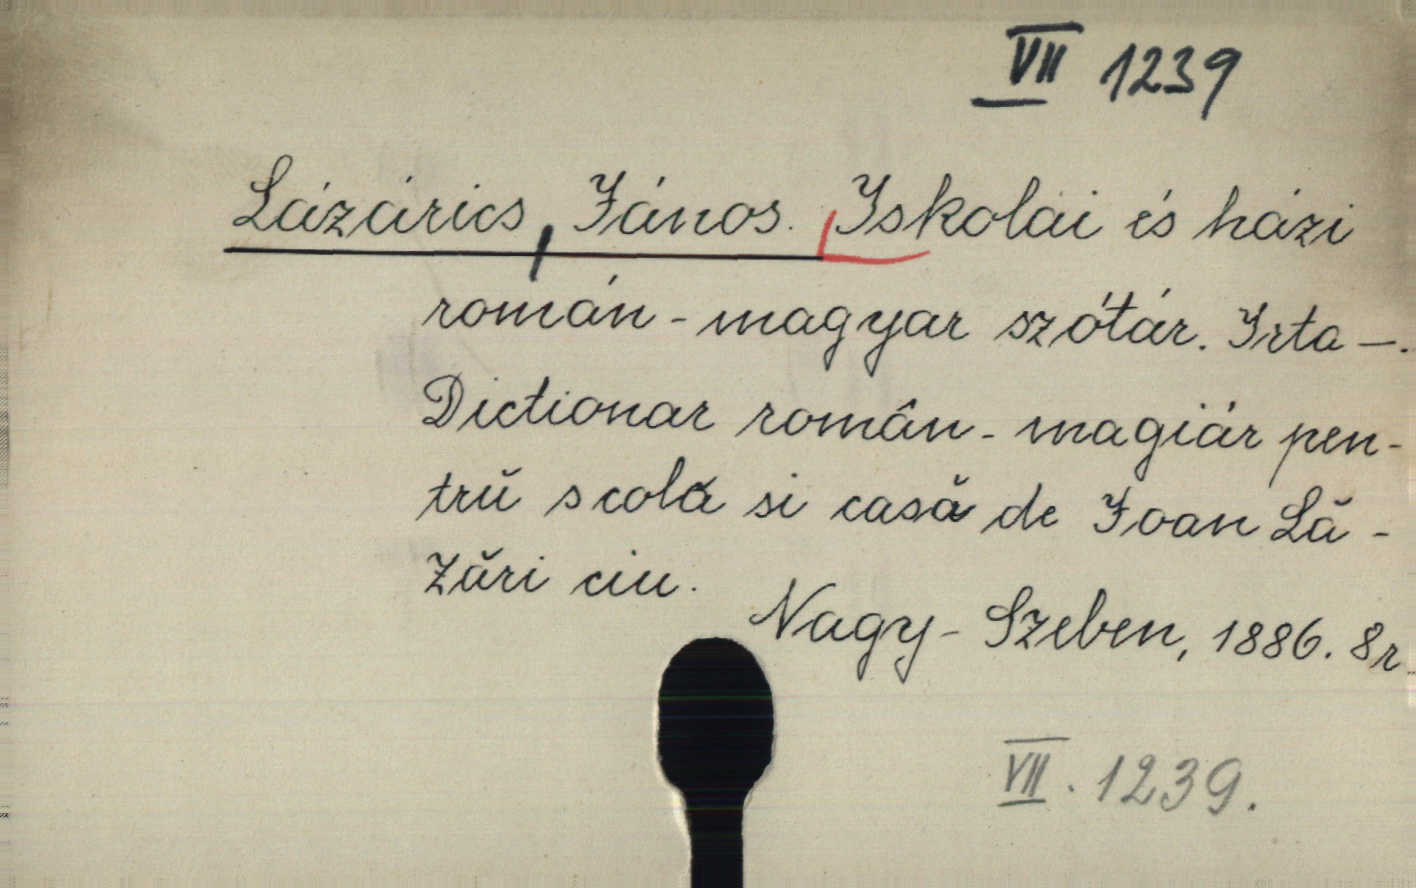 VII 1239
Lázárics, János. Iskolai és házi
román-magyar szótár. Irta —.
Dictionar român-magiár pen-
trŭ scolă si casă de Ioan Lă-
zări ciu.
Nagy-Szeben, 1886. 8r.
VII. 1239.